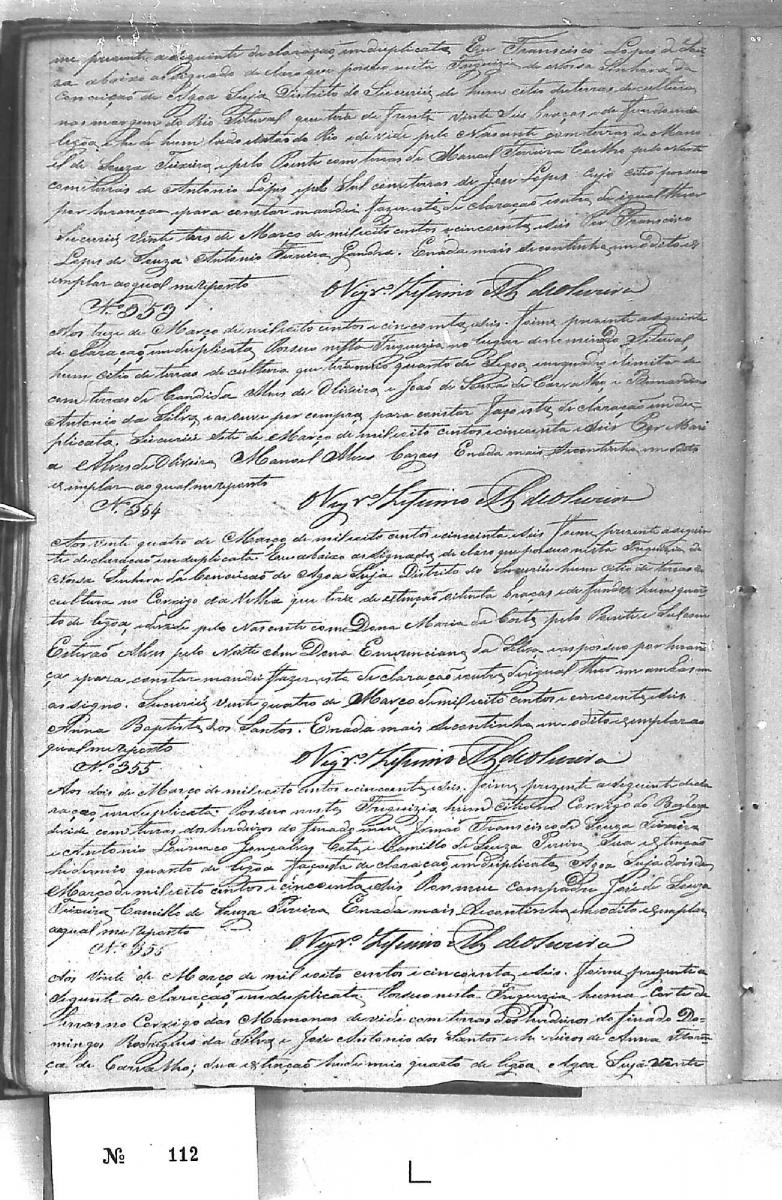 me prezente a seguinte declaração, em duplicata Eu Francisco Lopes de Sou
za abaixo assignado declaro que possuo nesta Freguizia de Nossa Senhora da
Conceição de Agoa Suja Districto do Sucuriú de hum citio de terras de cultura
nas margem do Rio Setuval que tera de frente vinte seis braças e de fundo mda
legoa, he de hum lado Rio devide pelo Nascente com terras de Mano
el de Souza Teixeira e pelo Poente com terras de Manoel Ferreira Coelho pelo Norte
com terras de Antonio Lopes e pelo Sul com terras de Jose Lopes cujo citio possuo
por herança e para constar mandei fazer esta declaração e outra de igual theor
Sucuriú vinte tres de Março de mil oito centos e cincoenta e seis Por Francisco
Lopes de Souza Antonio Pereira Gandra. E nada mais se continha em o dito ex
emplar ao qual me reporto
O Vigrº. Zeferino Alz de Oliveira
Nº 353
Aos treze de Março de mil oito centos e cincoenta e seis. Foi me prezente a seguinte
declaração em duplicata Possuo nesta Freguizia no lugar denominado Setuval
hum citio de terras de cultura que tera meio quarto de legoa em quadro e limita se
com terras de Candida Alves de Oliveira e João de Souza de Carvalho e Bernardino
Antonio da Silva e as ouve por compra, para constar faço esta declaração em du
plicata. Sucuriú sete de Março de mil oito centos e cincoenta e seis Por Mari
a Alves de Oliveira Manoel Alves Cazaes E nada mais se continha em o dito
exemplar ao qual me reporto
O Vigrº. Zeferino Alz de Oliveira
Nº 354
Aos vinte quatro de Março de mil oito centos e cincoenta e seis Foi me prezente a seguin
te declaração em duplicata. Eu abaixo assignada declaro que possuo nesta Freguizia de
Nossa Senhora da Conceição de Agoa Suja Districto do Sucuriú hum citio de terras de
cultura no Corrigo da Velha que tera de extinção oitenta braças e de fundos hum quar
to de legoa, e devide pelo Nascente com Dona Maria da Costa pelo Poente e Sul com
Estevão Alves pelo Norte com Dona Emerenciana da Silva e as possuo por heran
ça e para constar mandei fazer esta declaração e outra de igual theor em ambas m
assigno. Sucuriú vinte quatro de Março de mil oito centos e cincoenta e seis
Anna Baptista dos Santos. E nada mais se continha em o dito exemplar ao
qual me reporto
O Vigrº. Zeferino Alz de Oliveira
Nº 355
Aos dois de Março de mil oito centos e cincoenta e seis. Foi me prezente a seguinte decla
ração em duplicata. Possuo nesta Freguizia hum citio no Corrigo do
devide com terras dos herdeiros do finado meu Irmão Francisco de Souza Teixeira
e Antonio Lourenço Gonçalves e Camillo de Souza Pereira Sua extinção
he de meio quarto de legoa faço esta declaração em duplicata Agoa Suja dois de
Março de mil oito centos e cincoenta e seis Por meu compadre José de Souza
Teixeira Camillo de Souza Pereira E nada mais se continha em o dito exemplar
ao qual me reporto
O Vigrº. Zeferino Alz de Oliveira
Nº 355
Aos vinte de Março de mil oito centos e cincoenta e seis. Foi me prezente a
seguinte declaração em duplicata Possuo nesta Freguizia huma Corte de
terras no Corrigo das Mamonas devide com terras dos herdeiros do finado Do
mingos Rodrigues da Silva e José Antonio dos Santos e herdeiros de Anna
ça de Carvalho; sua extinção he de meio quarto de legoa Agoa Suja vinte
Nº 112